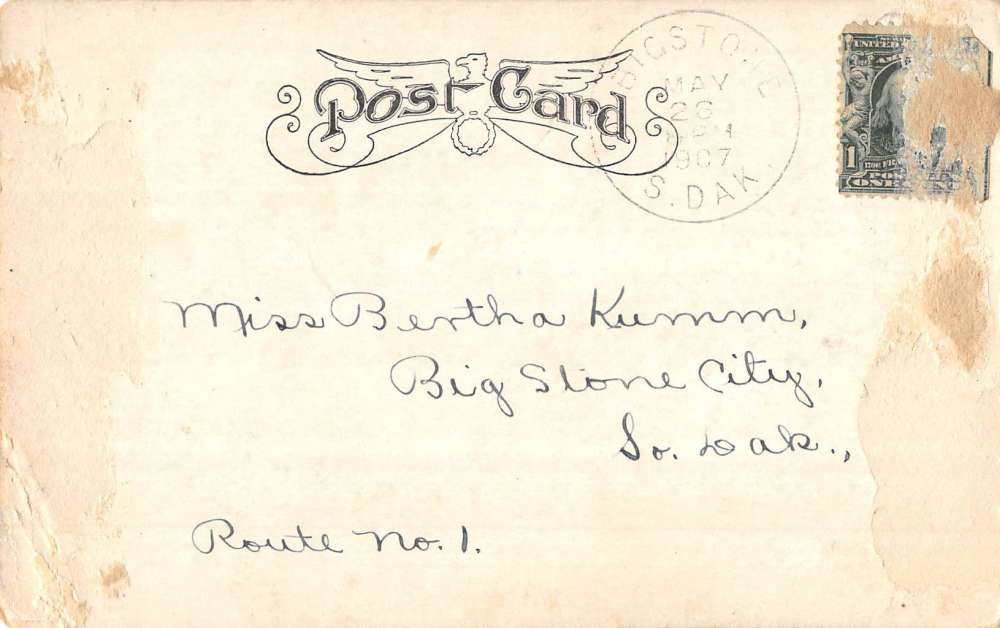 Post Card
BIGSTONE
MAY
26
1907
S. DAK.
UNITED
1
Miss Bertha Kumm,
Big Stone City,
So. Dak.,
Route No. 1.